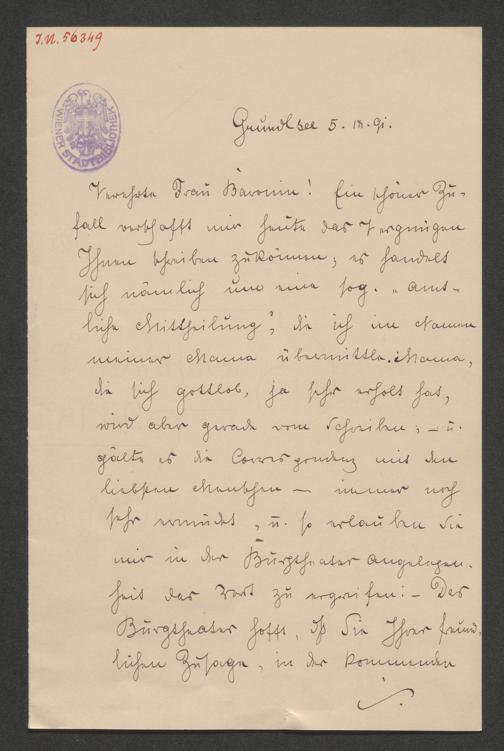 I.N. 56349
WIENER STADTBIBLIOTHEK
Grundlsee 5. IX. 91.
Verehrte Frau Baronin! Ein schöner Zu-
fall verschafft mir heute das Vergnügen
Ihnen schreiben zu können; es handelt
sich nämlich um eine sog. „amt-
liche Mittheilung", die ich im Namen
meiner Mama übermittle. Mama,
die sich gottlob, ja sehr erholt hat,
wird aber gerade vom Schreiben; – u.
gälte es die Correspondenz mit den
liebsten Menschen – immer noch
sehr ermüdet, u. so erlauben Sie
mir in der Burgtheater angelegen-
heit das Wort zu ergreifen: – Das
Burgtheater hofft, daß Sie Ihrer freund-
lichen Zusage, in der kommenden